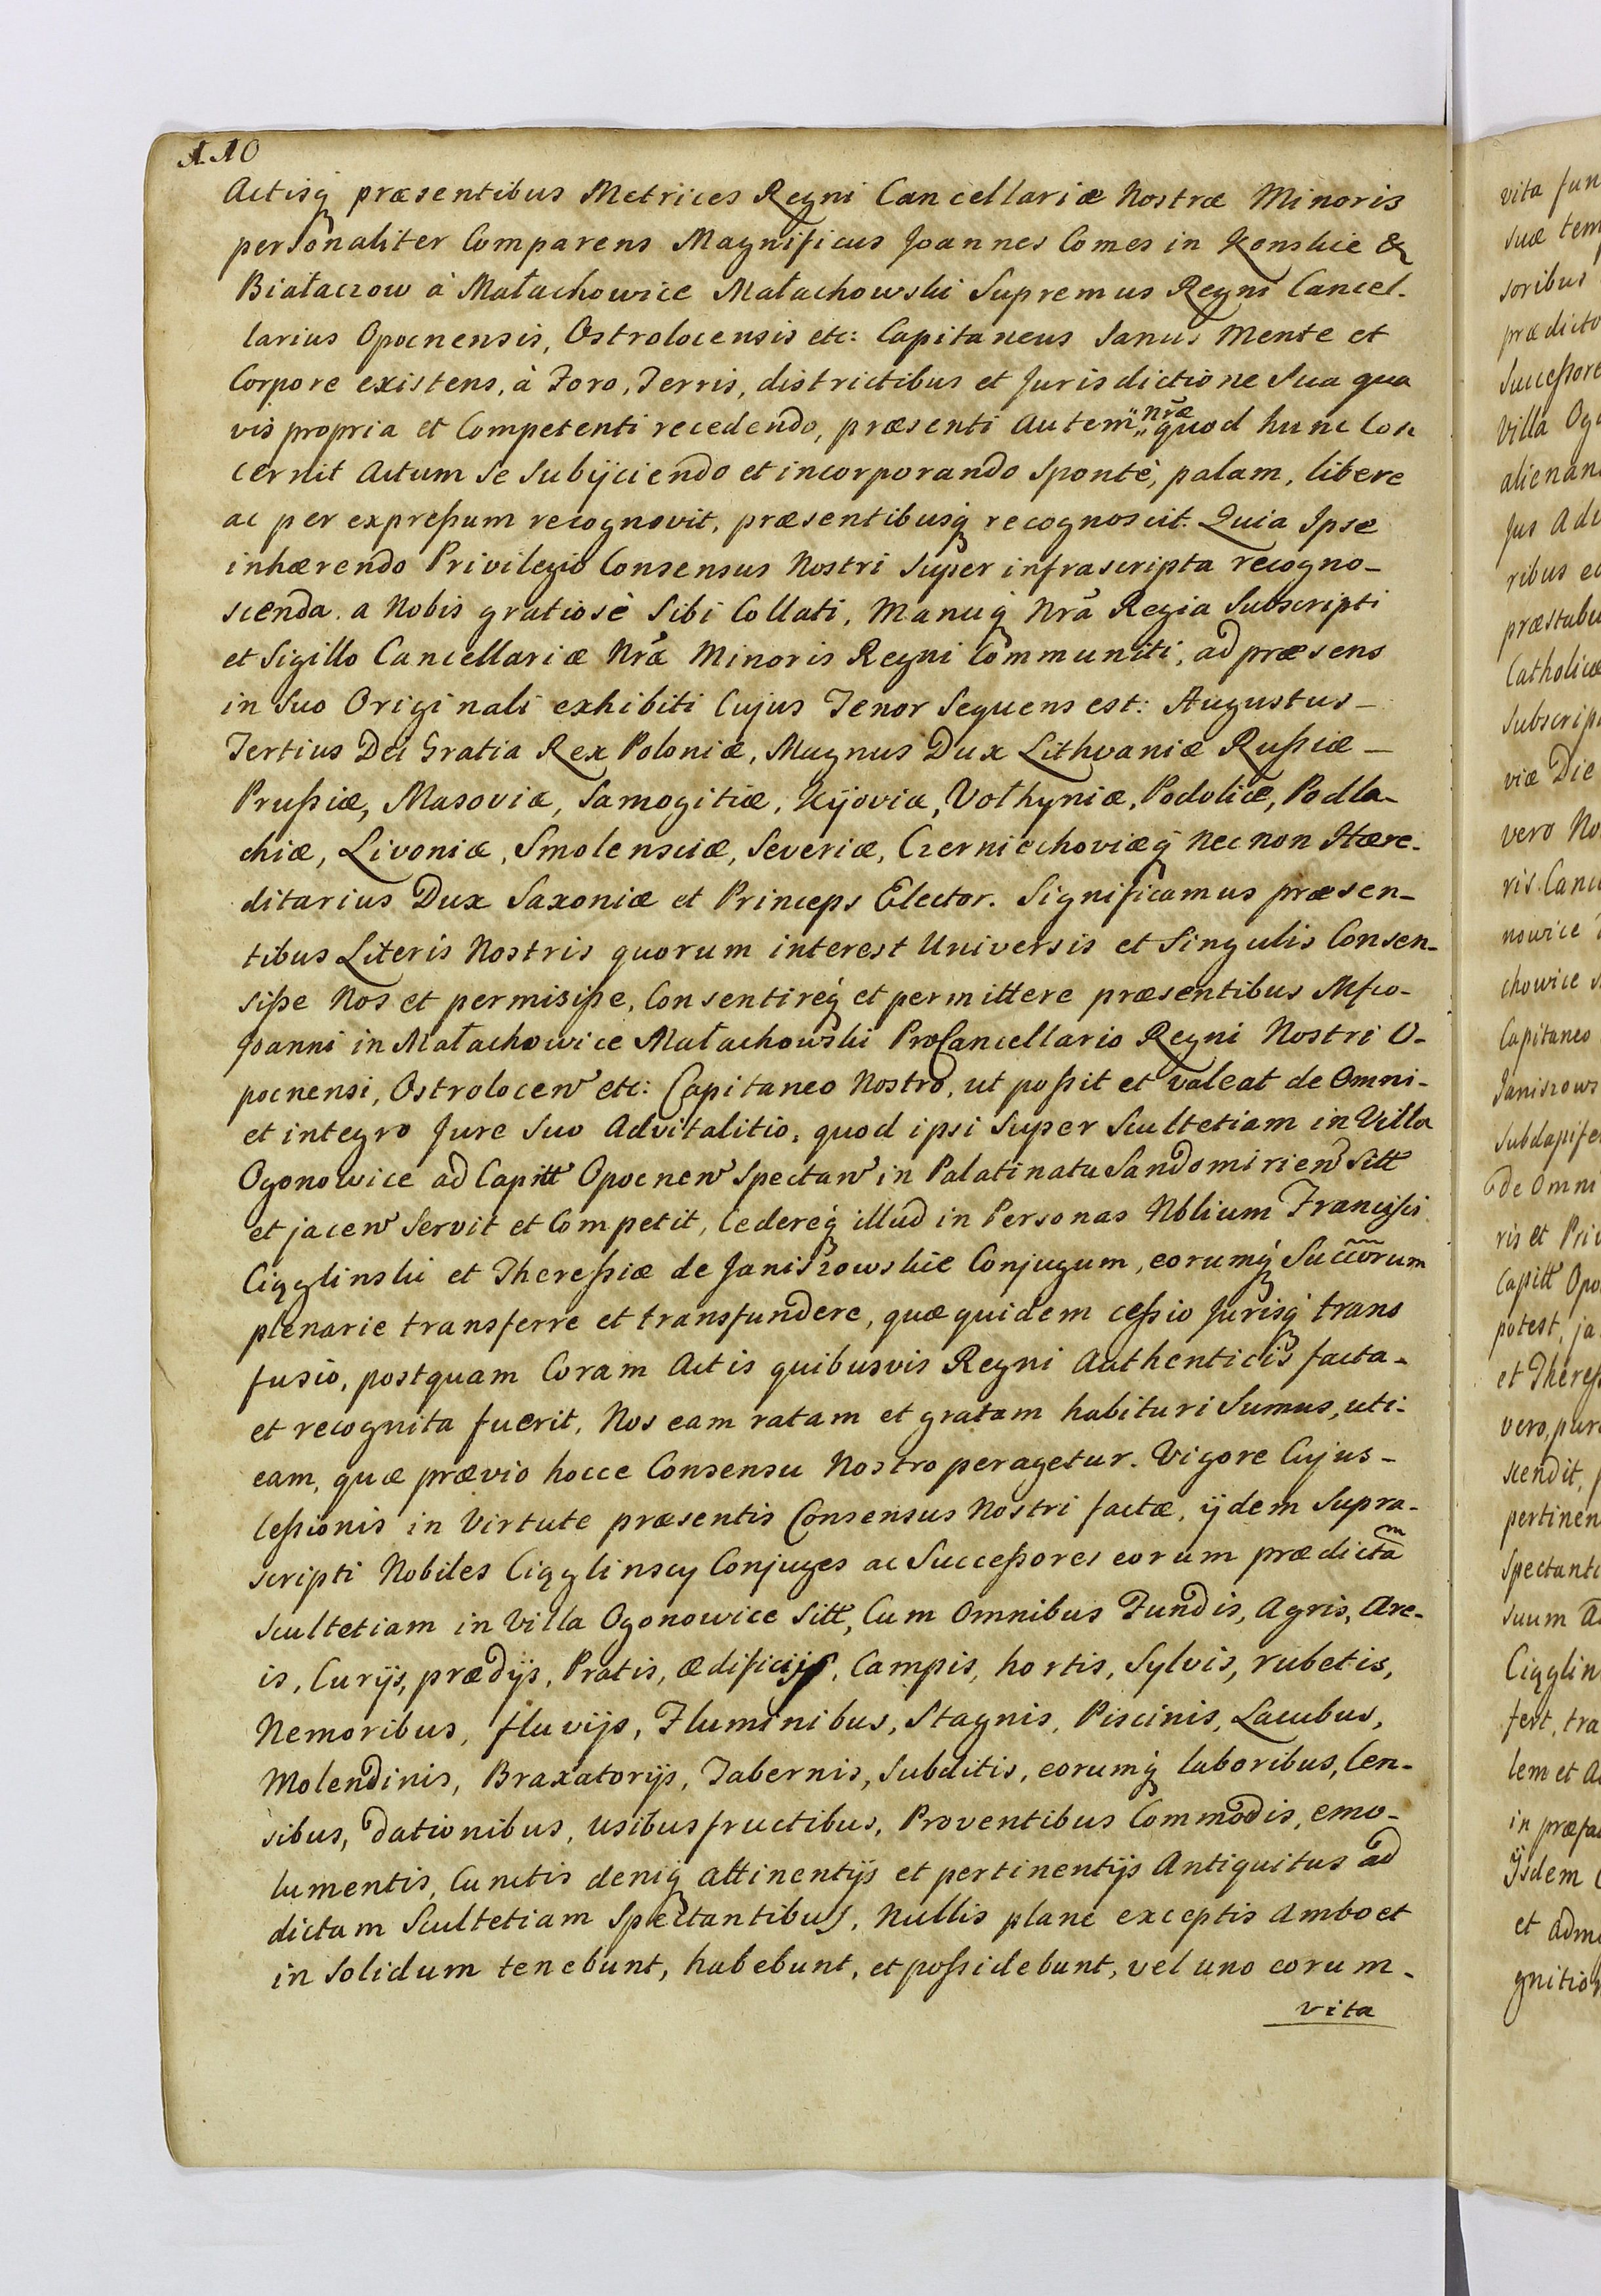 110
Actisq̨ præsentibus Metrices Regni Cancellariæ Nostræ Minoris
personaliter Comparens Magnificus Joannes Comes in Konskie &
Białaczow à Małachowice Małachowski Supremus Regni Cancel-
larius Opocnensis, Ostrolocensis etc: Capitaneus Sanus Mente et
Corpore existens, à Foro, Terris, districtibus et Jurisdictione Sua qua
vis propria et Competenti recedendo, præsenti autem „nræ„ quod hunc Con
cernit Actum se Subijciendo et incorporando Sponté, palam, libere
ac per expreßum recognovit, præsentibusq̨ recognoscit. Quia Ipse
inhærendo Privilegio Consensus Nostri Super infrascripta recogno-
scenda. a Nobis gratiosè Sibi Collati, Manuq̨ Nrã Regia Subscripti
et Sigillo Cancellariæ Nrã Minoris Regni Communiti, ad præsens
in Suo Originali exhibiti Cujus Tenor Sequens est: Augustus-
Tertius Dei Gratia Rex Poloniæ, Magnus Dux Lithvaniæ Rußiæ-
Prußiæ, Masoviæ, Samogitiæ, Kijoviæ, Volhyniæ, Podoliæ, Podla-
chiæ, Livoniæ, Smolensciæ, Severiæ, Czerniechoviæq̨ Nec non Hære-
ditarius Dux Saxoniæ et Princeps Elector. Significamus præsen-
tibus Literis Nostris quorum interest Universis et Singulis Consen-
siße Nos et permisiße, Consentireq̨ et permittere præsentibus Mfco-
Joanni in Małachowice Małachowski ProCancellario Regni Nostri O-
pocnensi, Ostrolocen̄ etc: Capitaneo Nostro, ut poßit et valeat de Omni-
et integro Jure Suo Advitalitio, quod ipsi Super Scultetiam in Villa
Ogonowice ad Capitt Opocnen̄ Spectan̄ in Palatinatu Sandomirien̄ Sitt
et jacen̄ Servit et Competit, Cedereq̨ illud in Personas Nblium Francisci
Ciągliński et Thereßiæ de Janiszowskie Conjugum, eorumq̨ Succorum
plenarie transferre et transfundere, quæ quidem ceßio Jurisq̨ trans
fusio, postquam Coram Actis quibusvis Regni Authenticis facta-
et recognita fuerit, Nos eam ratam et gratam habituri Sumus, uti-
eam, quæ prævio hocce Consensu Nostro peragetur. Vigore Cujus-
Ceßionis in Virtute præsentis Consensus Nostri factæ, ijdem Supra-
scripti Nobiles Ciąglinscy Conjuges ac Succeßores eorum prædictãm
Scultetiam in Villa Ogonowice Sitt, Cum Omnibus Fundis, Agris, Are-
is, Curijs, prædijs, Pratis, ædificijs, Campis, hortis, Sylvis, rubetis,
Nemoribus, fluvijs, Fluminibus, Stagnis, Piscinis, Lacubus,
Molendinis, Braxatorijs, Tabernis, Subditis, eorumq̨ laboribus, Cen-
sibus, dationibus, usibusfructibus, Proventibus Commodis, emo-
lumentis, Cunctis deniq̨ attinentijs et pertinentijs Antiquitus ad
dictam Scultetiam Spectantibus, Nullis plane exceptis Ambo et
in Solidum tenebunt, habebunt, et poßidebunt, vel uno eorum-
vita
vita fun
suæ tem
soribus
prædicto
Succeßore
Villa Ogo
alienan
Jus Adv
ribus e
præstabu
Catholicæ
Subscrip
viæ Die
vero No
ris Canc
nowice
chowice
Capitaneo
Janiszows
Subdapife
de Omni
ris et Pri
Capitt Opo
potest, ja
et Thereß
vero, pur
scendit,
pertinen
Spectant
suum
Ciąglin
fert, tra
lem et A
in præfa
Ijsdem
et adm
gnition